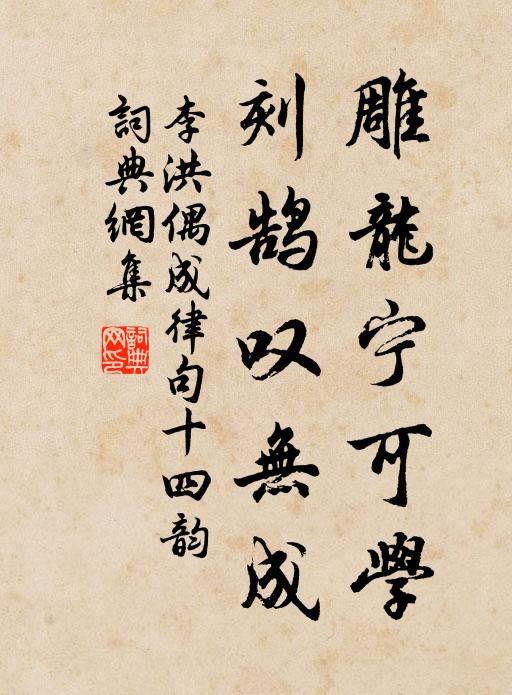 雕龍宁可學
刻鹄叹無成
李洪偶成律句十四韵
詞典網集
詞典網印